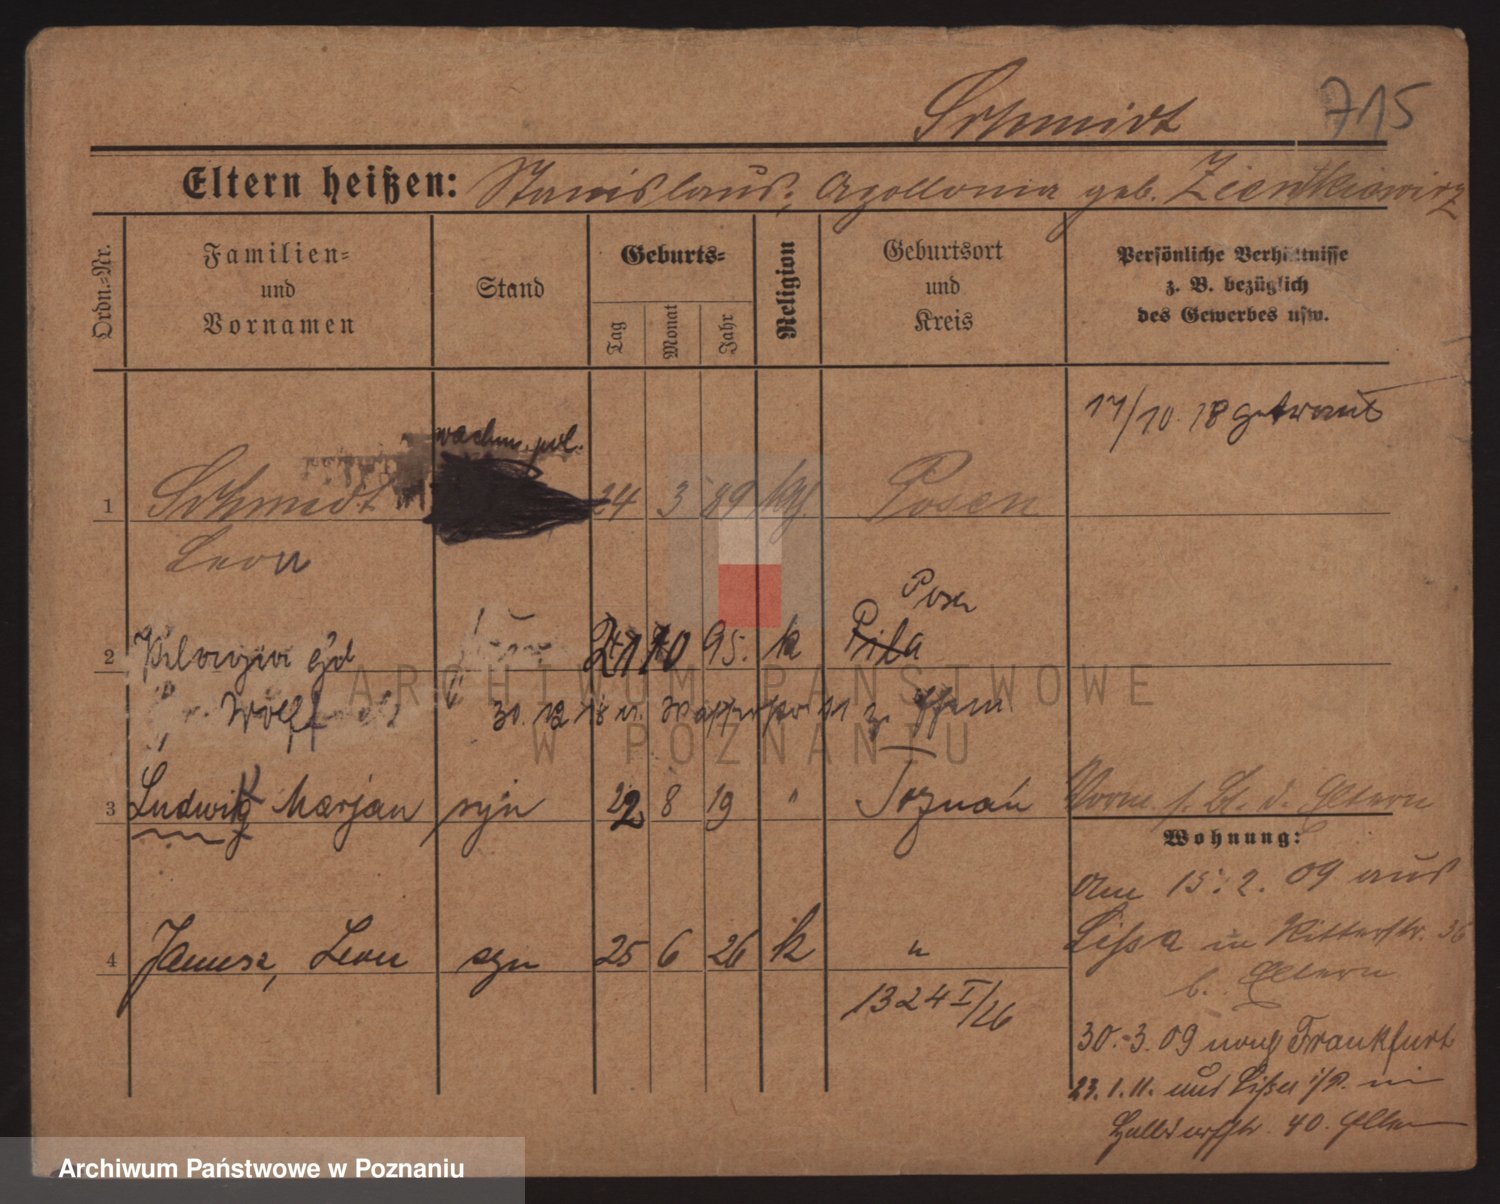 Schmidt 715
Eltern heißen: Stanislaus, Apollonia geb. Zienkiewicz
Ordn.-Nr.
Familien-
und
Vornamen
Stand
Geburts-
Tag
Monat
Jahr
Religion
Geburtsort
und
Kreis
Persönliche Verhältnisse
z. B. bezüglich
des Gewerbes usw.
17/10. 18 getraut
1 Schmidt 24 3 89 kth. Posen
Leon
Posen
2 95. k Pila
Wolff 30. 12 18
3 Ludwik Marjan syn 22 8 19 " Poznań
Vorm. s. Bl. d. Eltern
Wohnung:
Am 15. 2. 09 aus
Lissa in Ritterstr. 36
b. Eltern
4 Janusz, Leon syn 25 6 26 k "
1324 I/26
30.-3. 09 nach Frankfurt
23. 1. 11. aus Lissa i/P. in
40. Eltern
ARCHIWUM PAŃSTWOWE
W POZNANIU
Archiwum Państwowe w Poznaniu